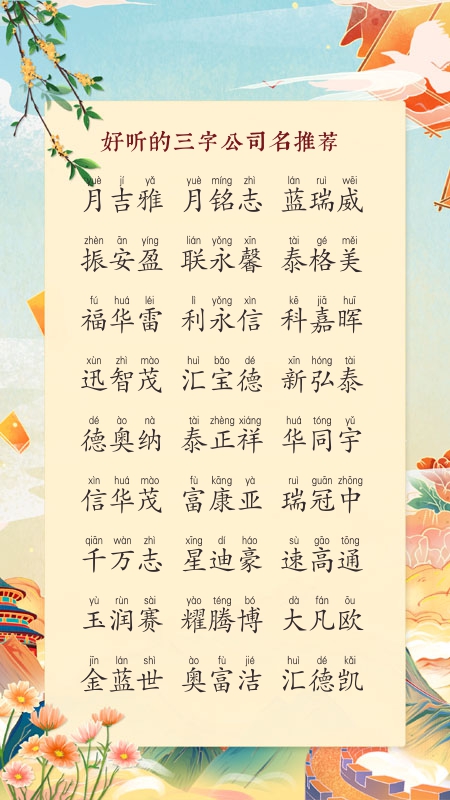 好听的三字公司名推荐
yuè jí yǎ yuè míng zhì lán ruì wēi
月吉雅 月铭志 蓝瑞威
zhèn ān yíng lián yǒng xīn tài gé měi
振安盈 联永馨 泰格美
fú huá léi lì yǒng xìn kē jiā huī
福华雷 利永信 科嘉晖
xùn zhì mào huì bǎo dé xīn hóng tài
迅智茂 汇宝德 新弘泰
dé ào nà tài zhèng xiáng huá tóng yǔ
德奥纳 泰正祥 华同宇
xìn huá mào fù kāng yà ruì guān zhōng
信华茂 富康亚 瑞冠中
qiān wàn zhì xīng dí háo sù gāo tōng
千万志 星迪豪 速高通
yù rùn sài yào téng bó dà fán ōu
玉润赛 耀腾博 大凡欧
jīn lán shì ào fù jié huì dé kǎi
金蓝世 奥富洁 汇德凯